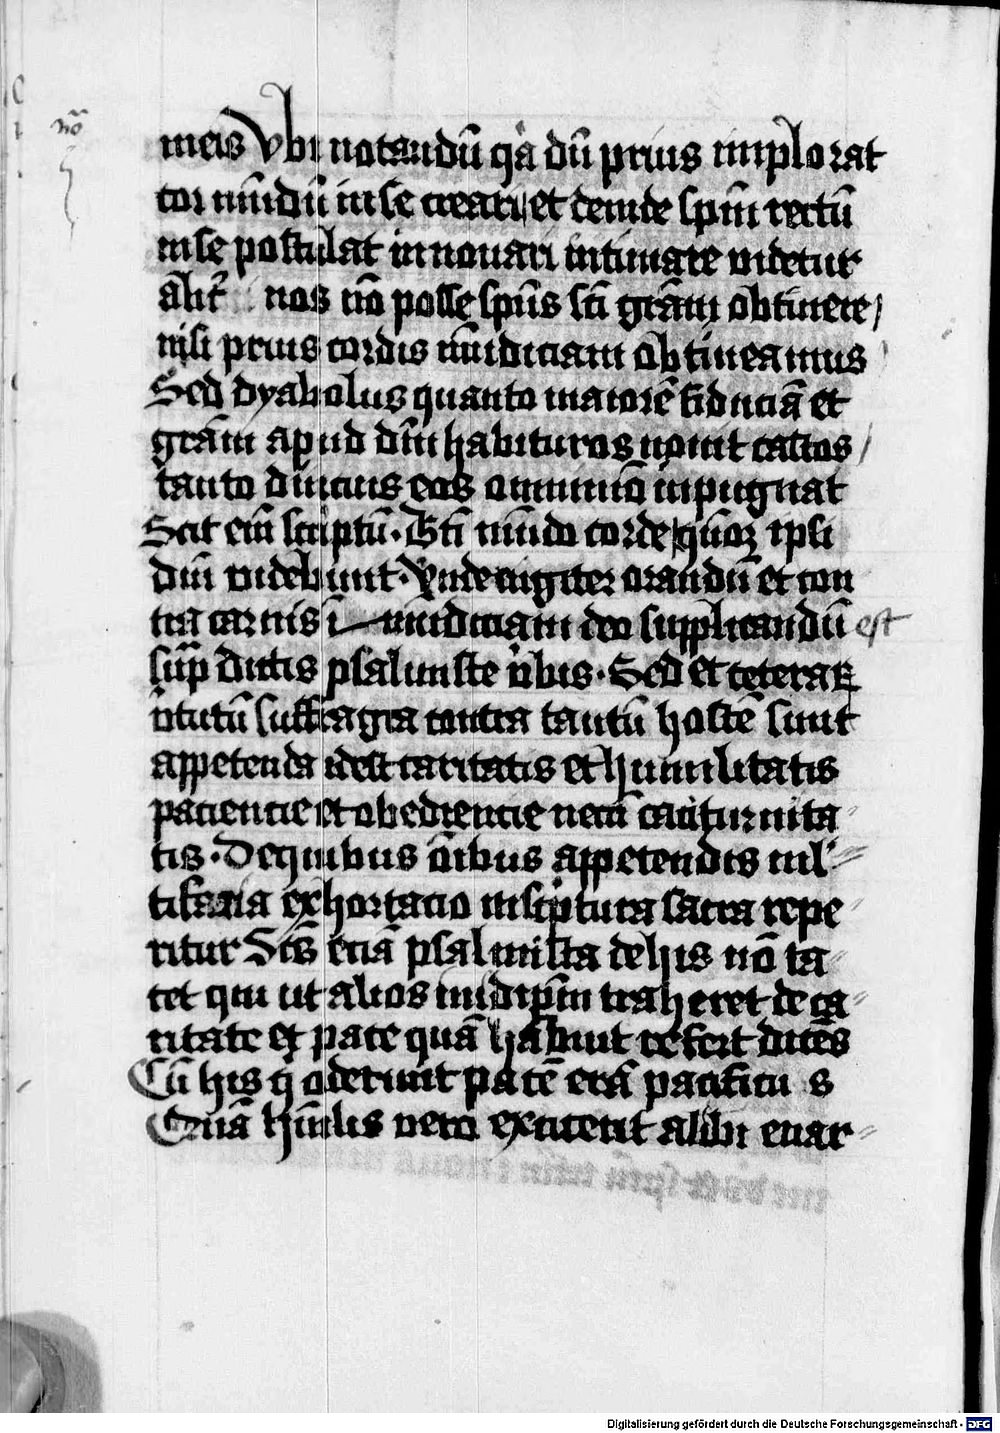 nō
meis Vbi notandū qͣ dū prius implorat
cor mūdū in se creari et deinde spm̄ rectū
in se postulat innouari intimare videtur
alit̓ nos nō posse spūs scī grām obtinere /
nisi prius cordis mūdiciam obtineamus
Sed dyabolus quanto maiorē fiduciā et
grām apud dm̄ habituros nouit castos /
tanto diucius eos omnimō inpugnat
Scit em̄ scriptū · Bti mūdo corde quōꝝ ipsi
dm̄ videbunt · Vnde iugiter orandū et con
tra carnis i mūdiciam deo supplicandū est
sup̄ dictis psalmiste v̓bis · Sed et ceteraꝝ
v̓tutū suffragia contra tantū hostē sunt
appetenda idest caritatis et humilitatis
paciencie et obediencie necnō taciturnita
tis · De quibus oībus appetendis mul
tifaria exhortacio in scͥptura sacra repe
ritur Scūs eciā psalmista de his nō ta
cet qui ut alios in id ip̄m traheret de ca
ritate et pace quā habuit refert dicēs
Cū his q̓ oderunt pacē erā pacificus
Quā hūilis vero extiterit alibi enar